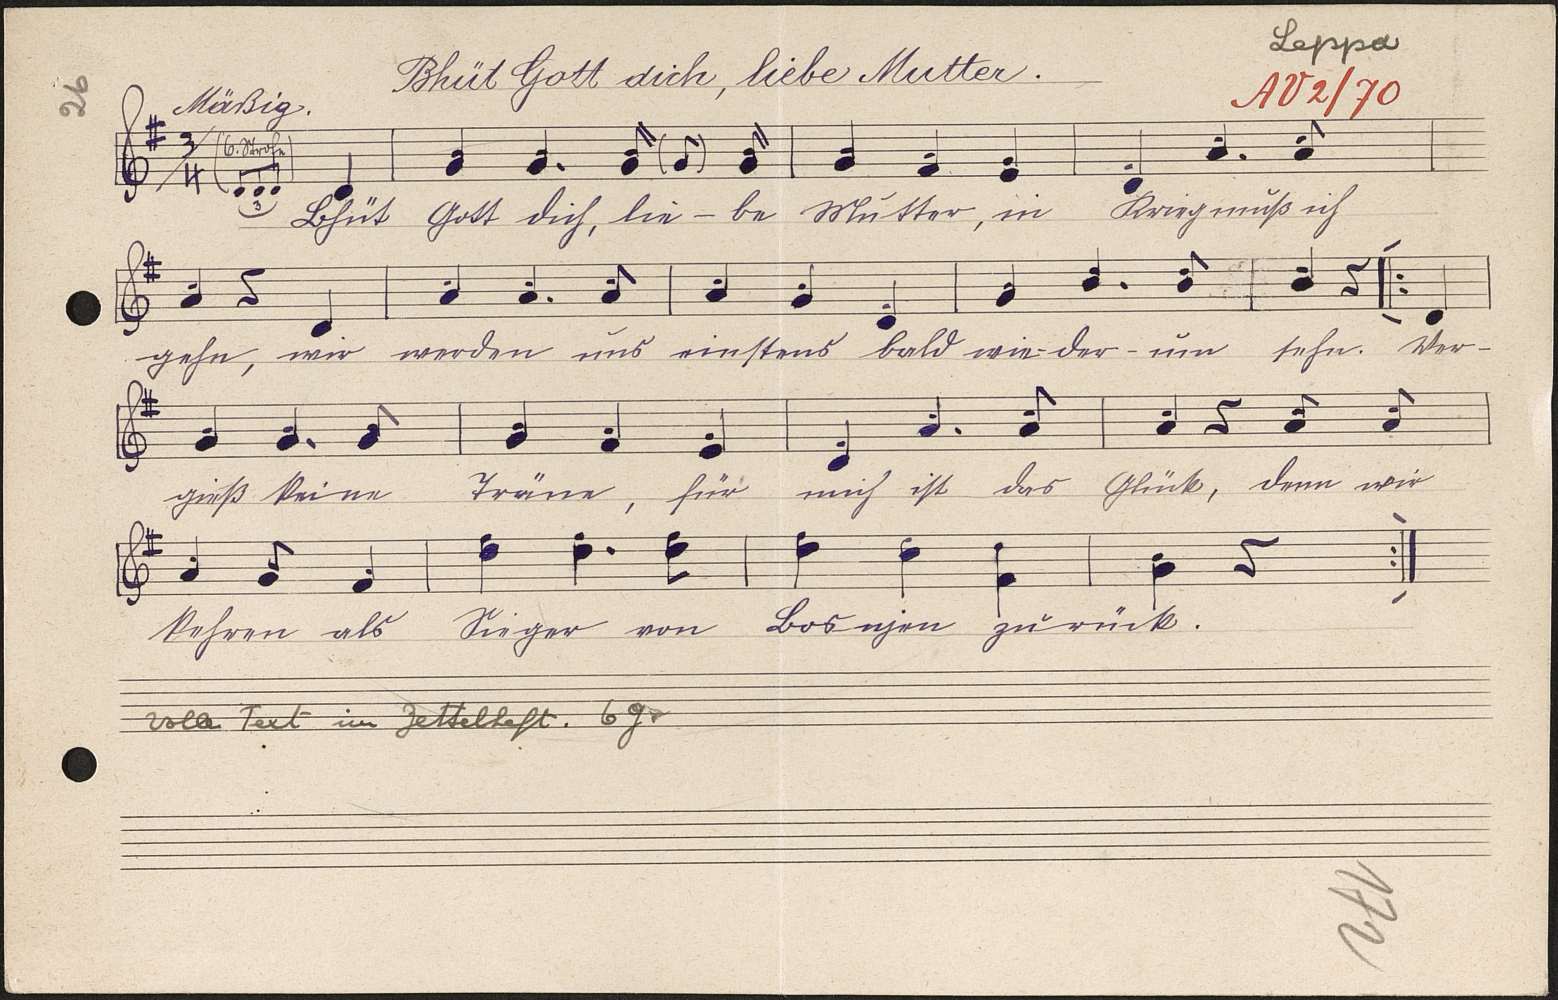 Leppa
Bhüt Gott dich, liebe Mutter.
AV 2/70
26
Mäßig.
3/4 (6. Strofe)
3
Bhüt Gott dich, lie - be Mutter, in Krieg muß ich
gehn, wir werden uns einstens bald wie-der-um sehn. Ver-
gieß keine Träne, für mich ist das Glück, denn wir
kehren als Sieger von Bosnjen zurück.
voller Text im Zettelheft. 6
172